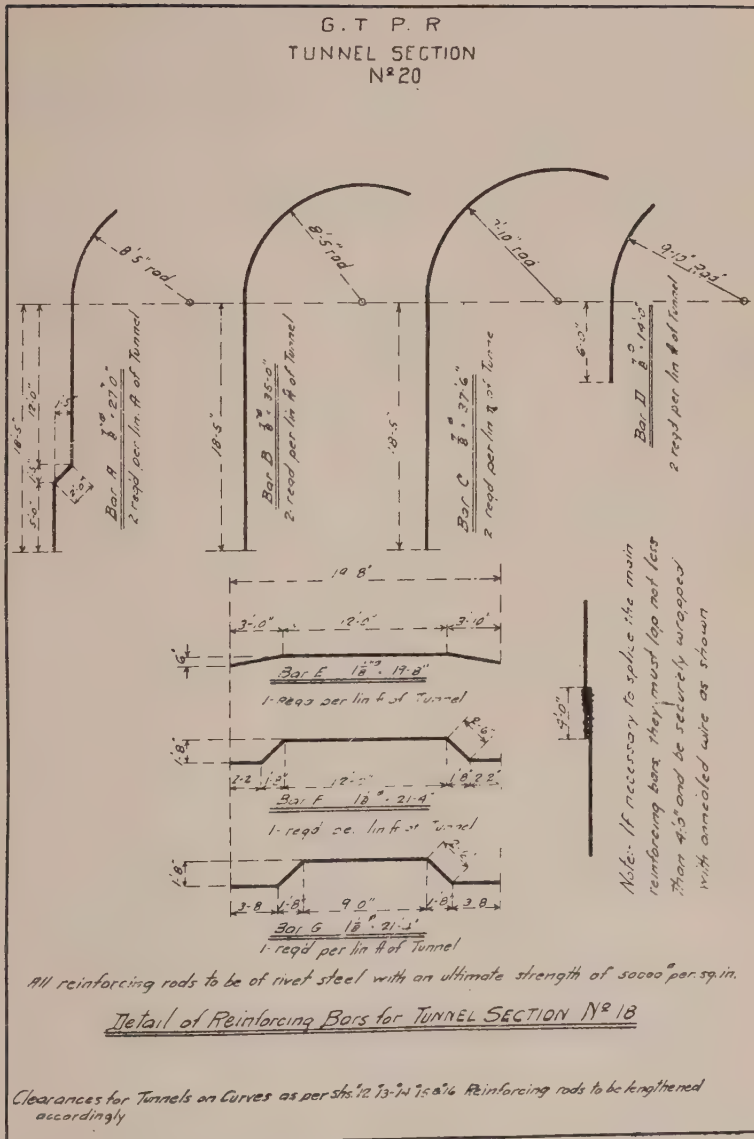 G.T P.R
TUNNEL SECTION
Nº 20
8'-5" rad
8'-5" rad
7'-10" rad
9'-10" Rad
18'-5"
12'-0"
1'-5"
5'-0"
Bar A 7/8"ᶲ - 27'0"
2 reqd per lin. ft of Tunnel
18'-5"
Bar B 7/8"ᶲ - 35'-0"
2 reqd per lin ft of Tunnel
18'-5"
Bar C 7/8"ᶲ - 37'-6"
2 reqd per lin ft of Tunne
6'-0"
Bar D 7/8"ᶲ - 14'-0"
2 reqd per lin ft of Tunnel
19'-8"
3'-10" 12'-0" 3'-10"
6"
Bar E 1 1/8"ᶲ - 19'-8"
1- Reqd per lin ft of Tunnel
1'-8"
2-2 1'-8" 12'-0" 1'8" 2 2
Bar F 1 1/8"ᶲ - 21'-4"
1- reqd per lin ft of Tunnel
1'-8"
3-8 1'-8" 9'0" 1'-8" 3 8
Bar G 1 1/8"ᶲ
1- reqd per lin ft of Tunnel
Note:- If necessary to splice the main
reinforcing bars, they must lap not less
than 4'-0" and be securely wrapped
with annealed wire as shown
4'-0"
All reinforcing rods to be of rivet steel with an ultimate strength of 50000# per. sq. in.
Detail of Reinforcing Bars for TUNNEL SECTION Nº 18
Clearances for Tunnels on Curves as per shs. #12 13-14 15 & 16 Reinforcing rods to be lengthened
accordingly